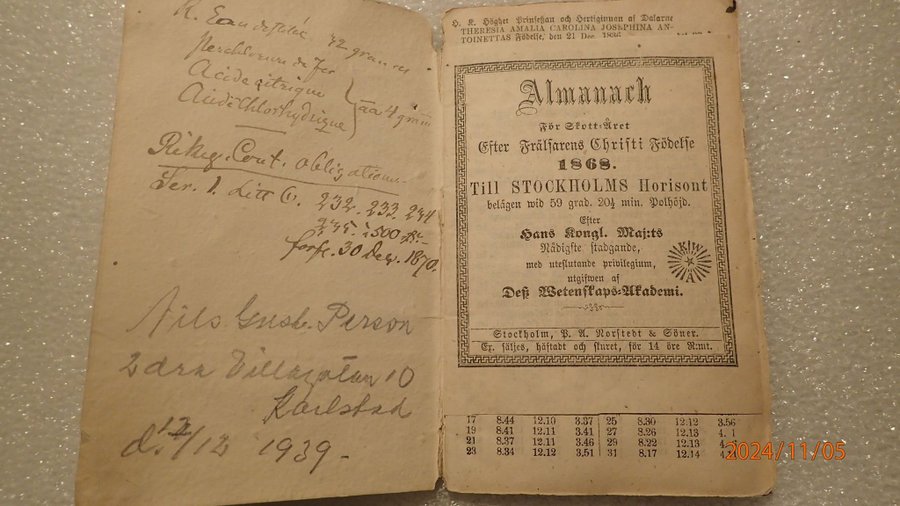 R. Eau distilée 42 grammes
Perchlorure de Fer
Acide citrique
Acide Chlorhydrique
āā 4 gramm
Rikrg. Cont. obligationer
Ser. 1. Litt C. 232. 233. 234
235. à 500 Rd
förf. 30 Dec. 1870.
Nils Gust. Person
2 dra Villagatan 10
Karlstad
d. 12/12 1939 -
H. K. Höghet Prinsessan och Hertiginnan af Dalarne
THERESIA AMALIA CAROLINA JOSEPHINA AN-
TOINETTAS Födelse, den 21 Dec.
Almanach
För Skott-Året
Efter Frälsarens Christi Födelse
1868.
Till STOCKHOLMS Horisont
belägen wid 59 grad. 20½ min. Polhöjd.
Efter
Hans Kongl. Maj:ts
Nådigste stadgande,
med uteslutande privilegium,
utgifwen af
Dess Wetenskaps-Akademi.
K W A
Stockholm, P. A. Norstedt & Söner.
Ex. säljes, häftadt och skuret, för 14 öre R:mt.
17 8.44 12.10 3.37 25 8.30 12.12 3.56
19 8.41 12.11 3.41 27 8.26 12.13 4. 1
21 8.37 12.11 3.46 29 8.22 12.13 4.
23 8.34 12.12 3.51 31 8.17 12.14 4.
2024/11/05